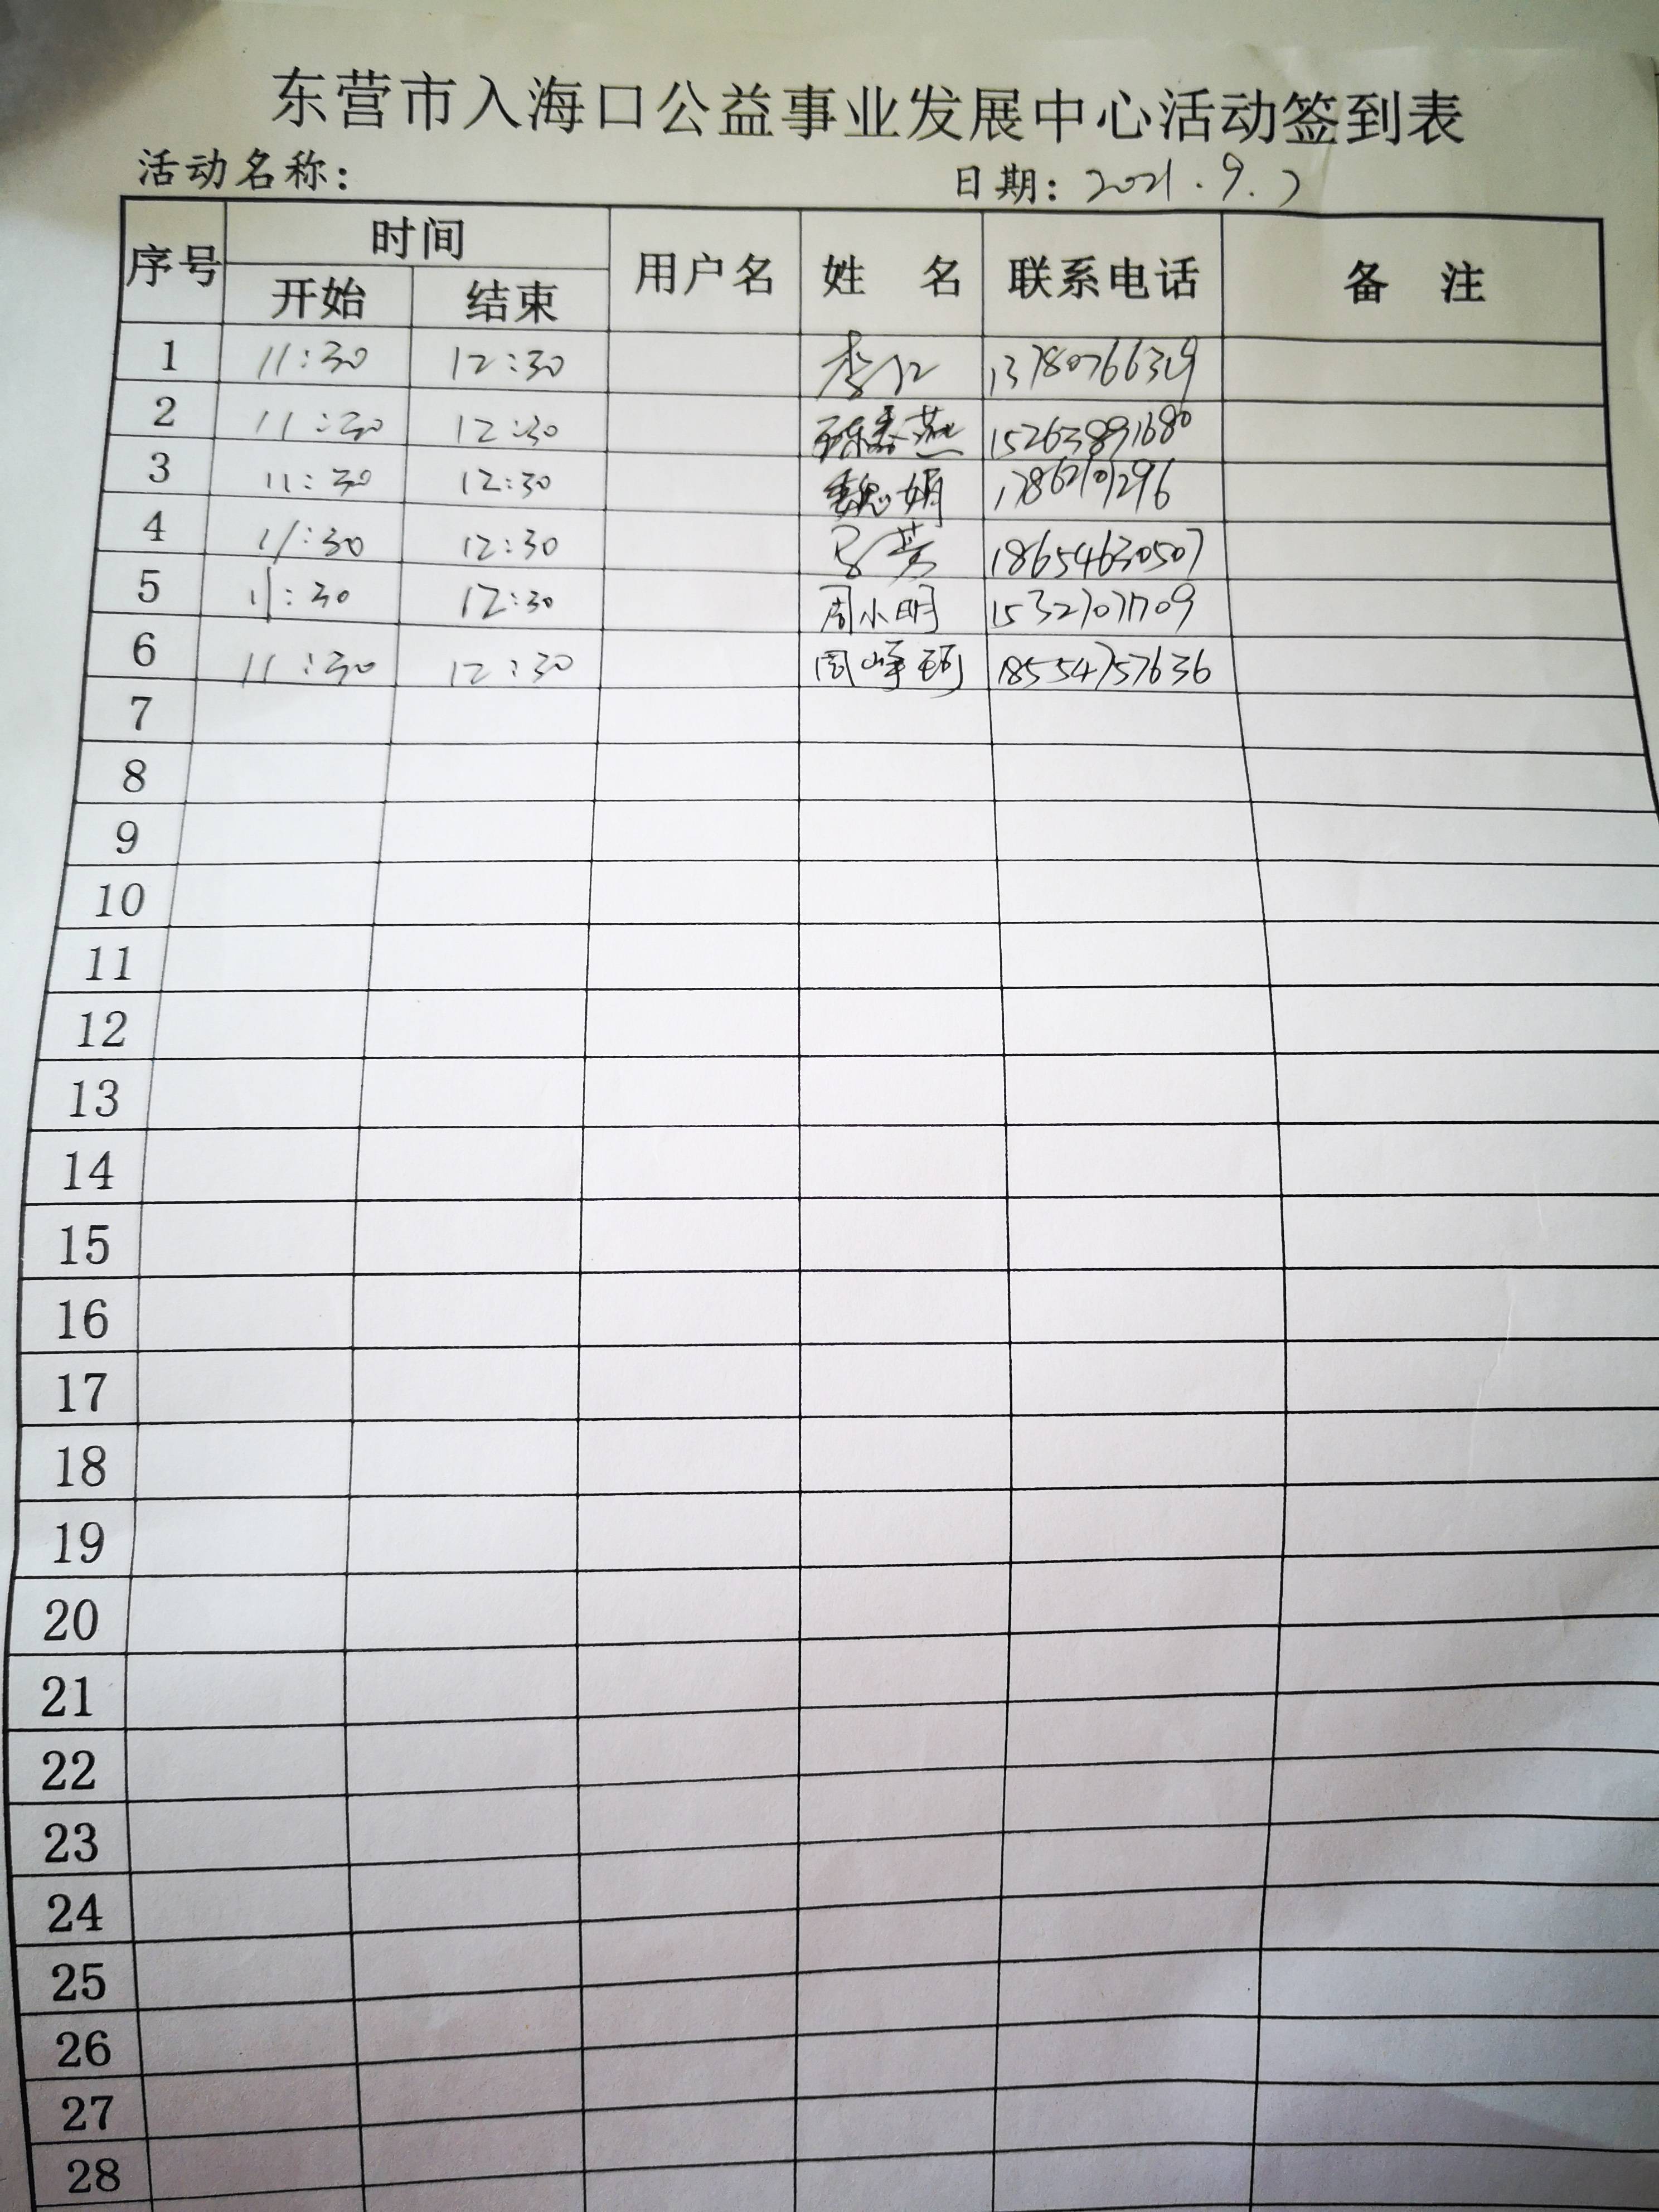 东营市入海口公益事业发展中心活动签到表
活动名称： 日期：2021.9.2
序号 时间 用户名 姓 名 联系电话 备 注
开始 结束
1 11:30 12:30 李江
2 11:30 12:30 15263891680
3 11:30 12:30 魏娟
4 11:30 12:30 18654630507
5 11:30 12:30 周小明
6 11:30 12:30 周峰珂 18554757636
7
8
9
10
11
12
13
14
15
16
17
18
19
20
21
22
23
24
25
26
27
28